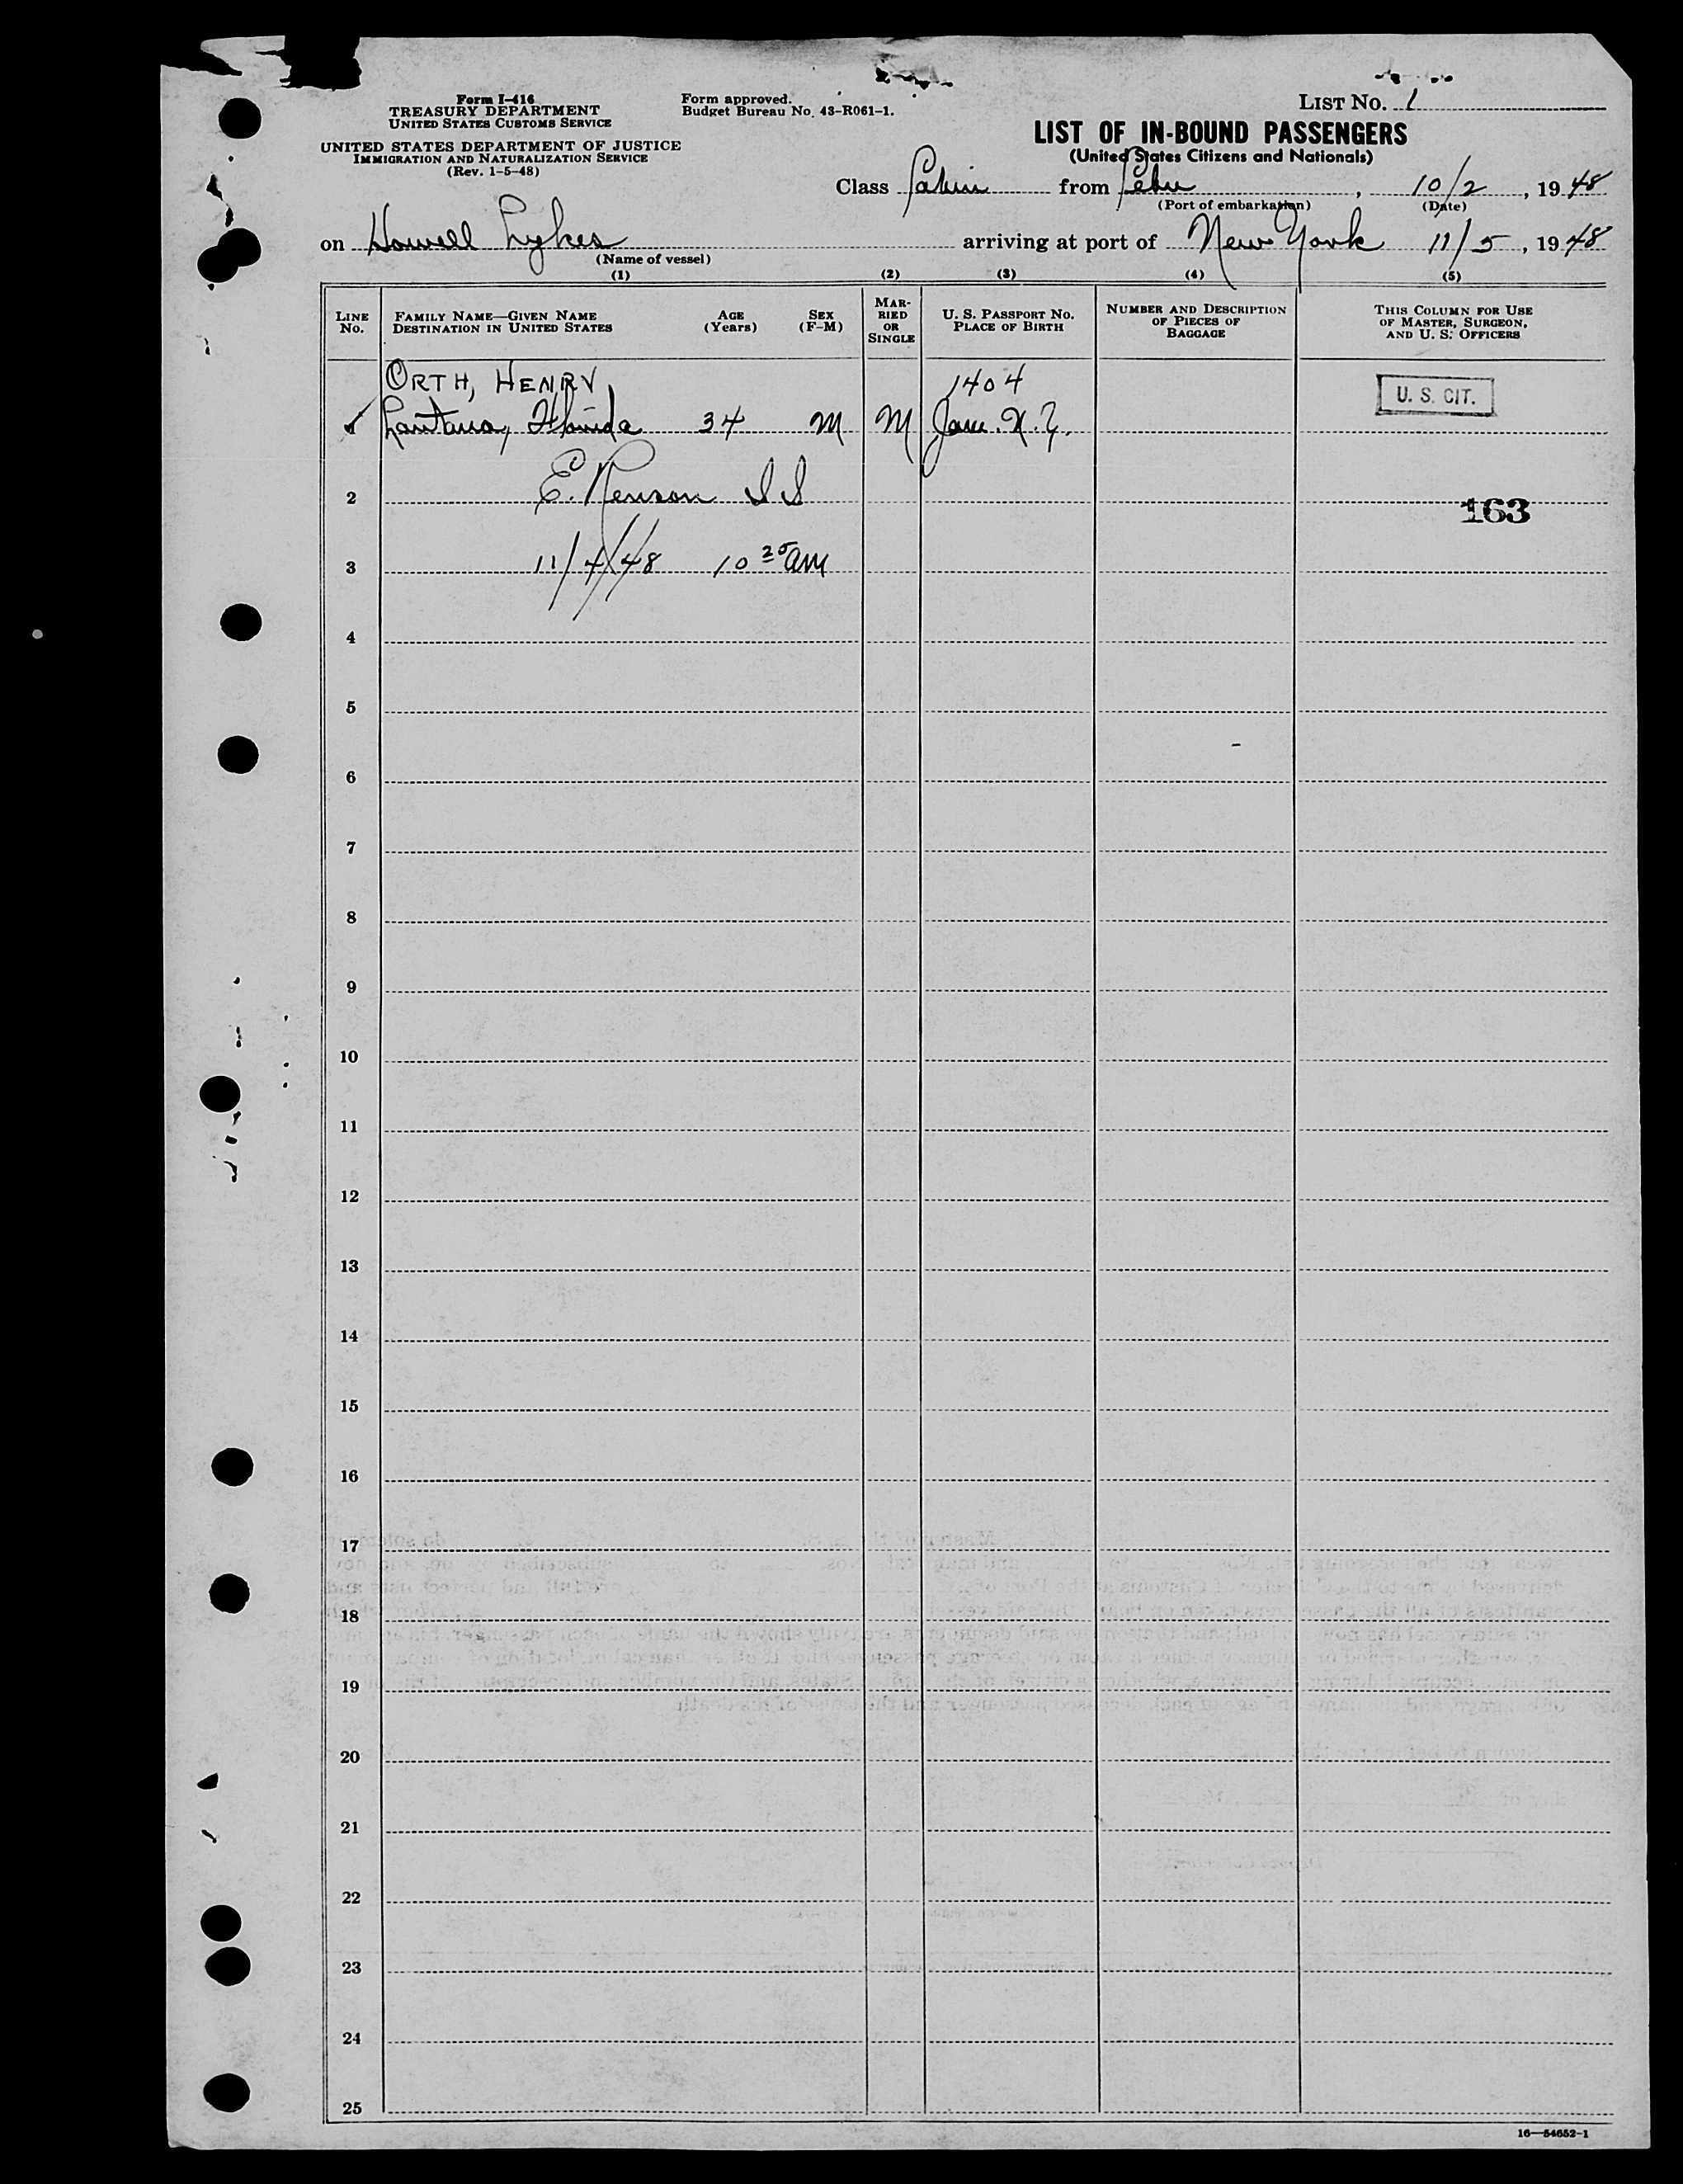 Form I-416
TREASURY DEPARTMENT
UNITED STATES CUSTOMS SERVICE
UNITED STATES DEPARTMENT OF JUSTICE
IMMIGRATION AND NATURALIZATION SERVICE
(Rev. 1-5-48)
Form approved.
Budget Bureau No. 43-R061-1.
LIST NO. 1
LIST OF IN-BOUND PASSENGERS
(United States Citizens and Nationals)
Class Cabin from Cebu, 10/2, 1948
(Port of embarkation) (Date)
on Howell Lykes arriving at port of New York 11/5, 1948
(Name of vessel)
(1) (2) (3) (4) (5)
LINE No.
FAMILY NAME—GIVEN NAME
DESTINATION IN UNITED STATES
AGE (Years)
SEX (F-M)
MARRIED OR SINGLE
U. S. PASSPORT NO.
PLACE OF BIRTH
NUMBER AND DESCRIPTION OF PIECES OF BAGGAGE
THIS COLUMN FOR USE OF MASTER, SURGEON, AND U. S. OFFICERS
ORTH, HENRY, 1404 U. S. CIT.
1 Lantana, Florida 34 M M Jam. N.Y.
2 E. 163
3 11/4/48 10 25 am
4
5
6
7
8
9
10
11
12
13
14
15
16
17
18
19
20
21
22
23
24
25
16—54652-1